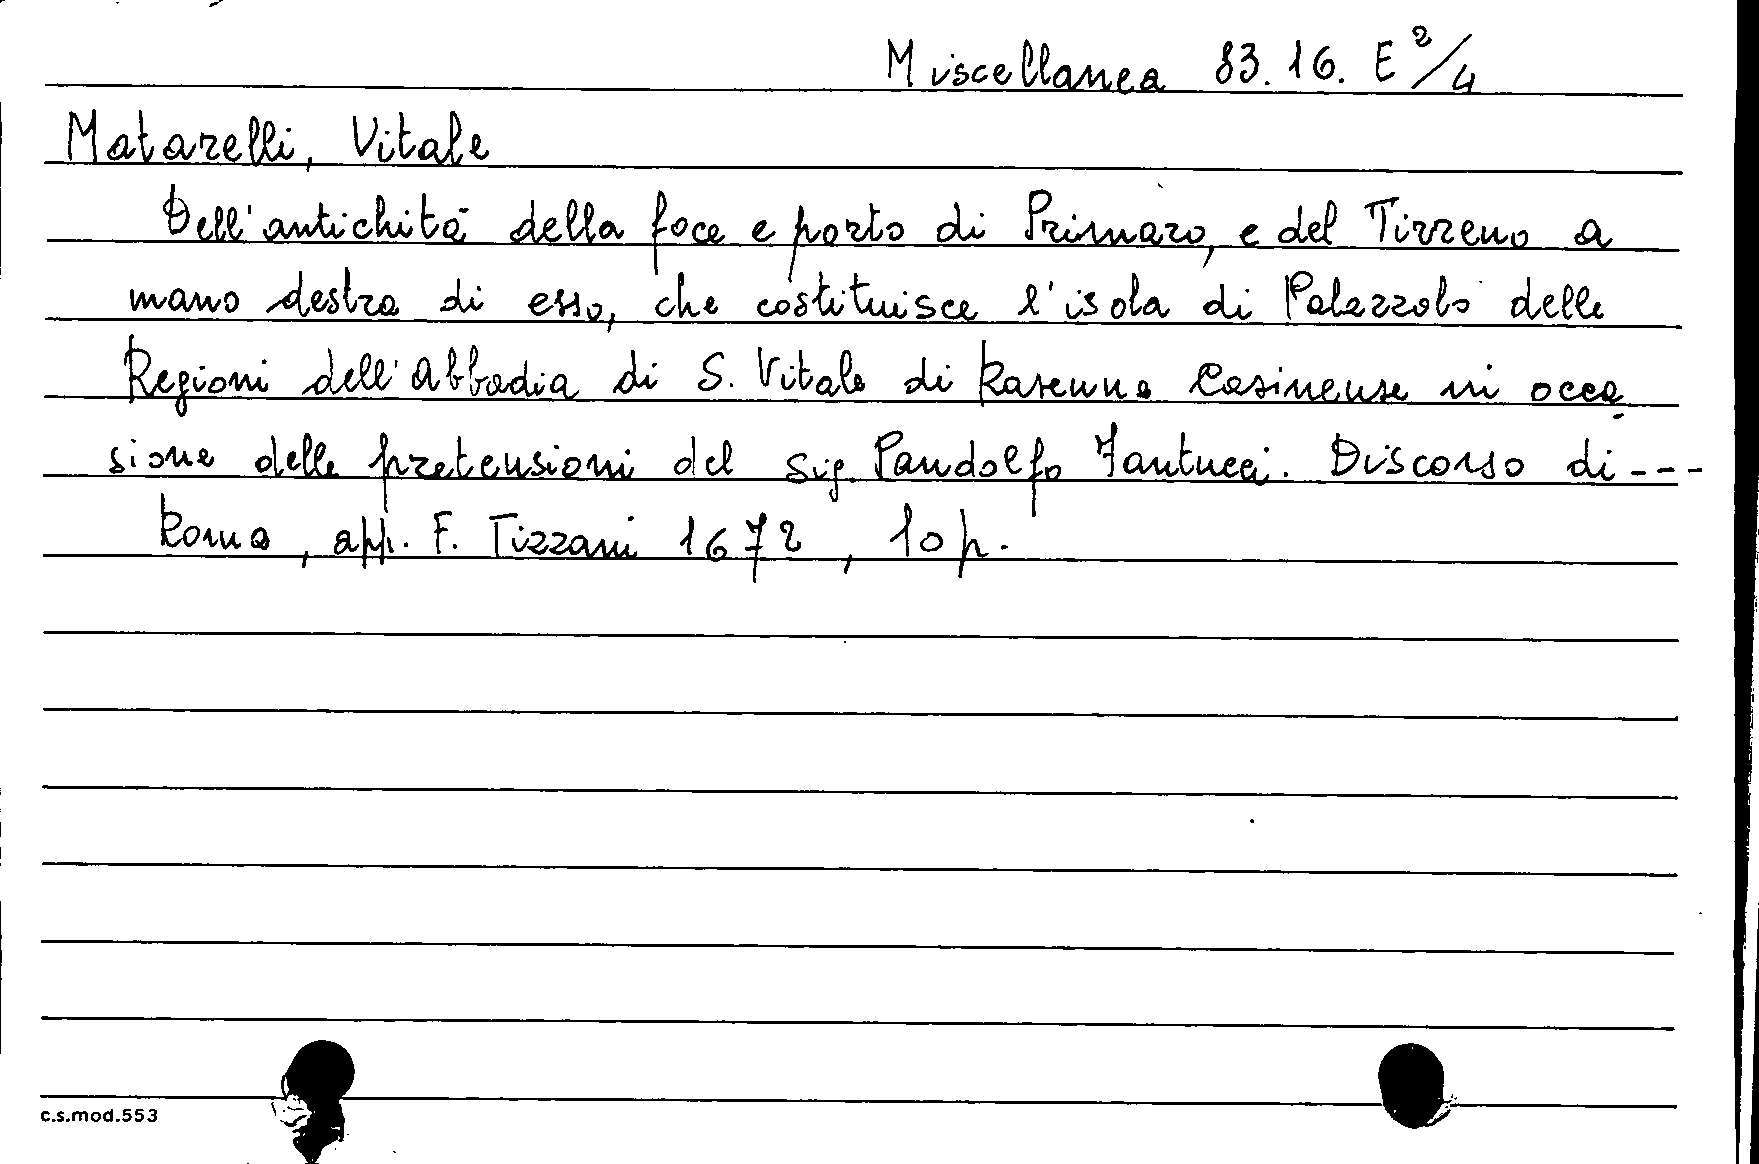 Miscellanea 83.16. E 2/4
Matarelli, Vitale
Dell'antichità della foce e porto di Primaro, e del Tirreno a
mano destra di esso, che costituisce l'isola di Palazzolo delle
Regioni dell'Abbadia di S. Vitale di Ravenna Casinense in occa
sione delle pretensioni del sig. Pandolfo Fantucci. Discorso di ---
Roma, app. F. Tizzani 1672, 10 p.
c.s.mod.553